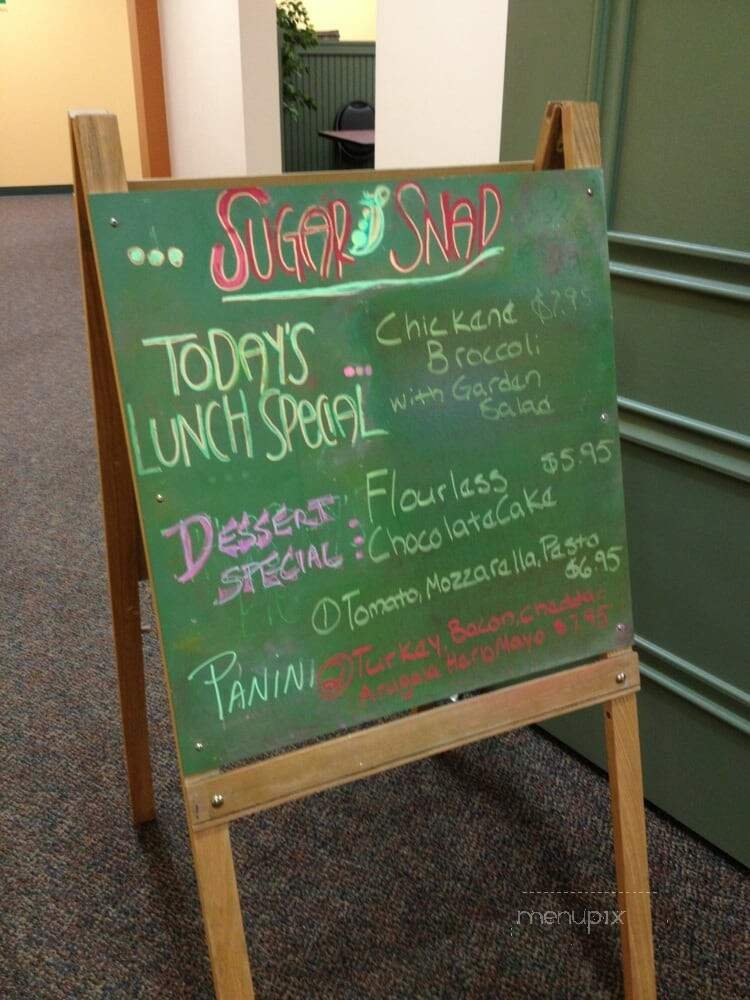 ... SUGAR SNAP
TODAY'S
LUNCH SPECIAL ...
Chickene $7.95
Broccoli
with Garden
Salad
DESSERT
SPECIAL :
Flourless $5.95
Chocolate Cake
PANINI
① Tomato, Mozzarella, Pesto
$6.95
② Turkey, Bacon, Cheddar
Arugala Herb Mayo $7.95
menupix